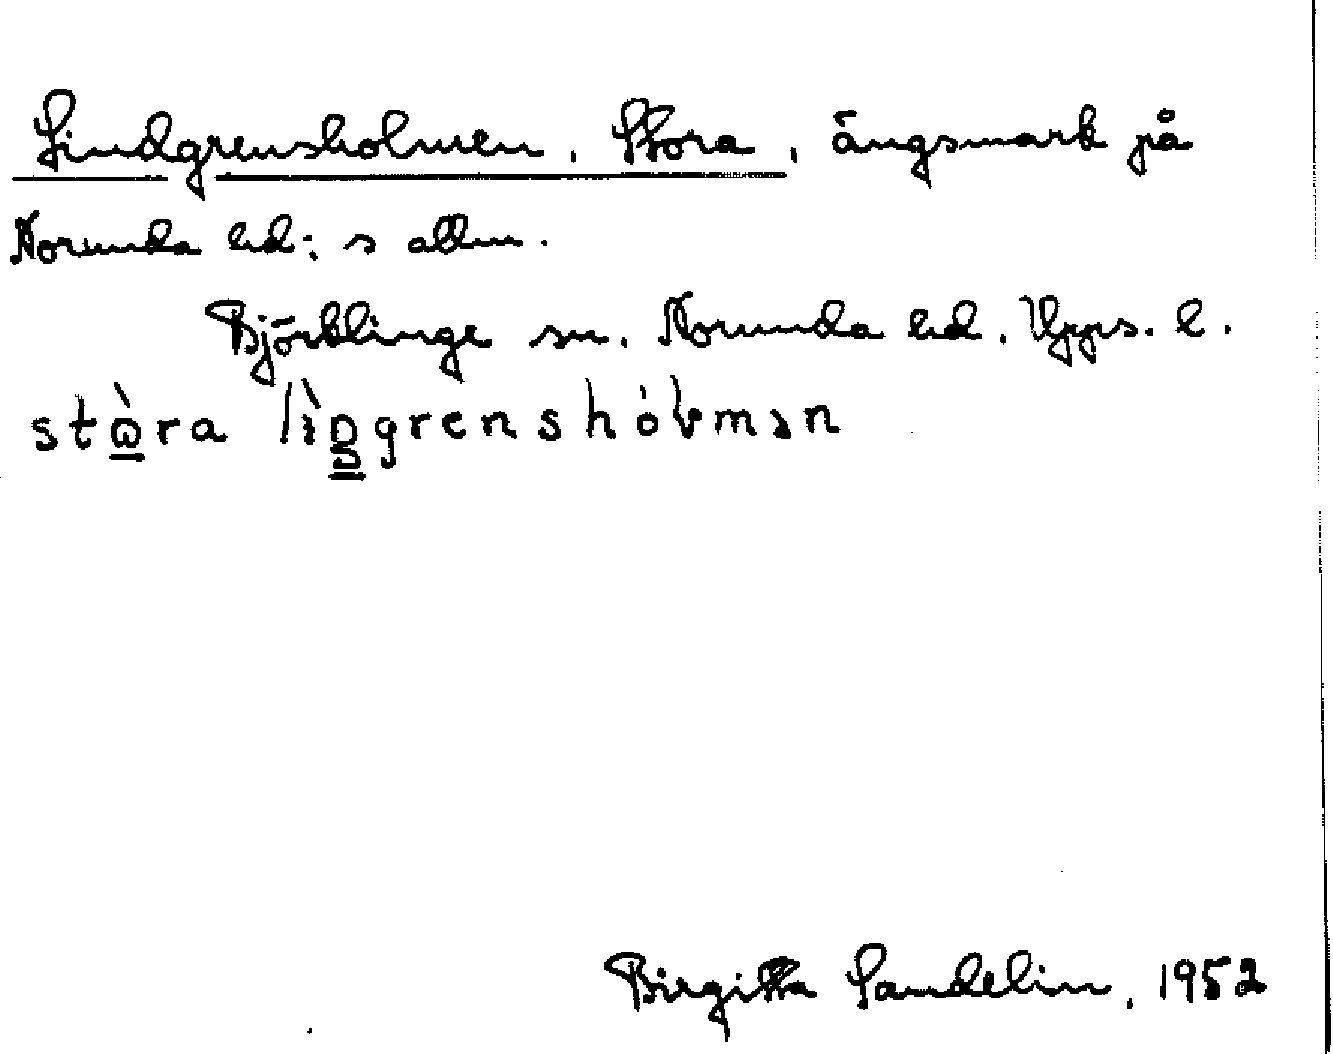 Lindgrensholmen, Stora, ängsmark på
Norunda hd:s allm.
Björklinge sn. Norunda hd. Upps. l.
Birgitta Sandelin, 1952